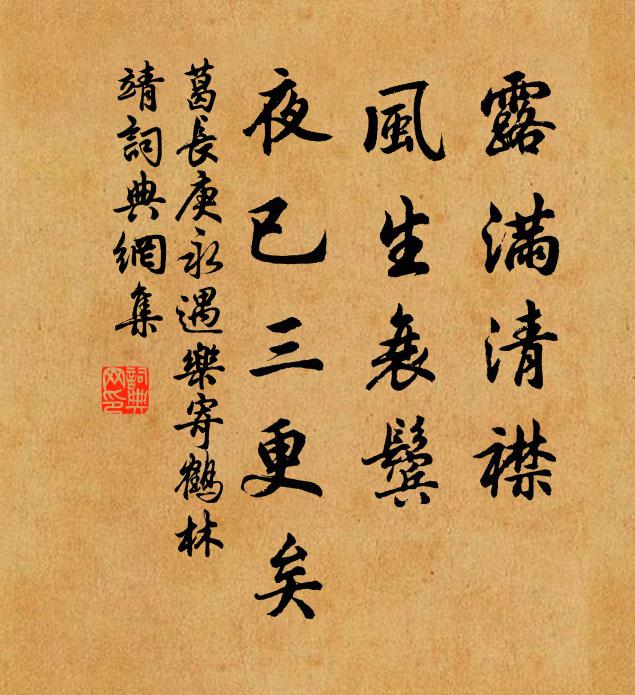 露滿清襟
風生衰鬢
夜已三更矣
葛長庚永遇樂寄鶴林
靖詞典網集
詞典
网印